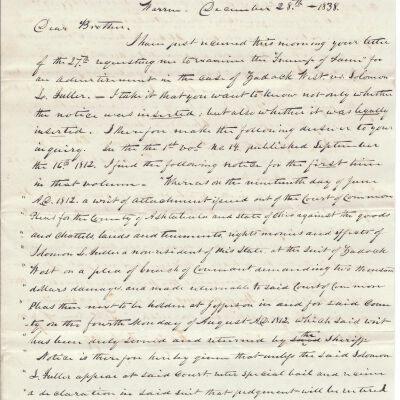 Warren. December 28th - 1838.
Dear Brother.
I have just received this morning your letter
of the 27th requesting me to examine the Trump of Fame for
an advertisement in the case of Zadock West vs. Solomon
L. Fuller. - I take it that you want to know not only whether
the notice was inserted; but also whether it was legally
inserted. I therefore make the following answer to your
inquiry. In the the 1st vol. No 14 published September
the 16th 1812. I find the following notice for the first time
in that volume. " Whereas on the nineteenth day of June
" A.D. 1812. a writ of attachment issued out of the Court of Common
" Pleas for the County of Ashtabula and State of Ohio against the goods
" and chattels lands and tenements, rights monies and effects of
" Solomon L. Fuller a nonresident of this State at the suit of Zadock
" West on a plea of breach of Covenant demanding two thousand
" dollars damages and made returnable to said Court of Common
" Pleas then next to be holden at Jefferson in and for said Coun
" ty on the fourth Monday of August A.D. 1812. which said writ
" has been duly served and returned by the Sheriff
" Notice is therefore hereby given that unless the said Solomon
" L. Fuller appear at said Court enter special bail and receive
" a declaration in said suit that judgment will be entered